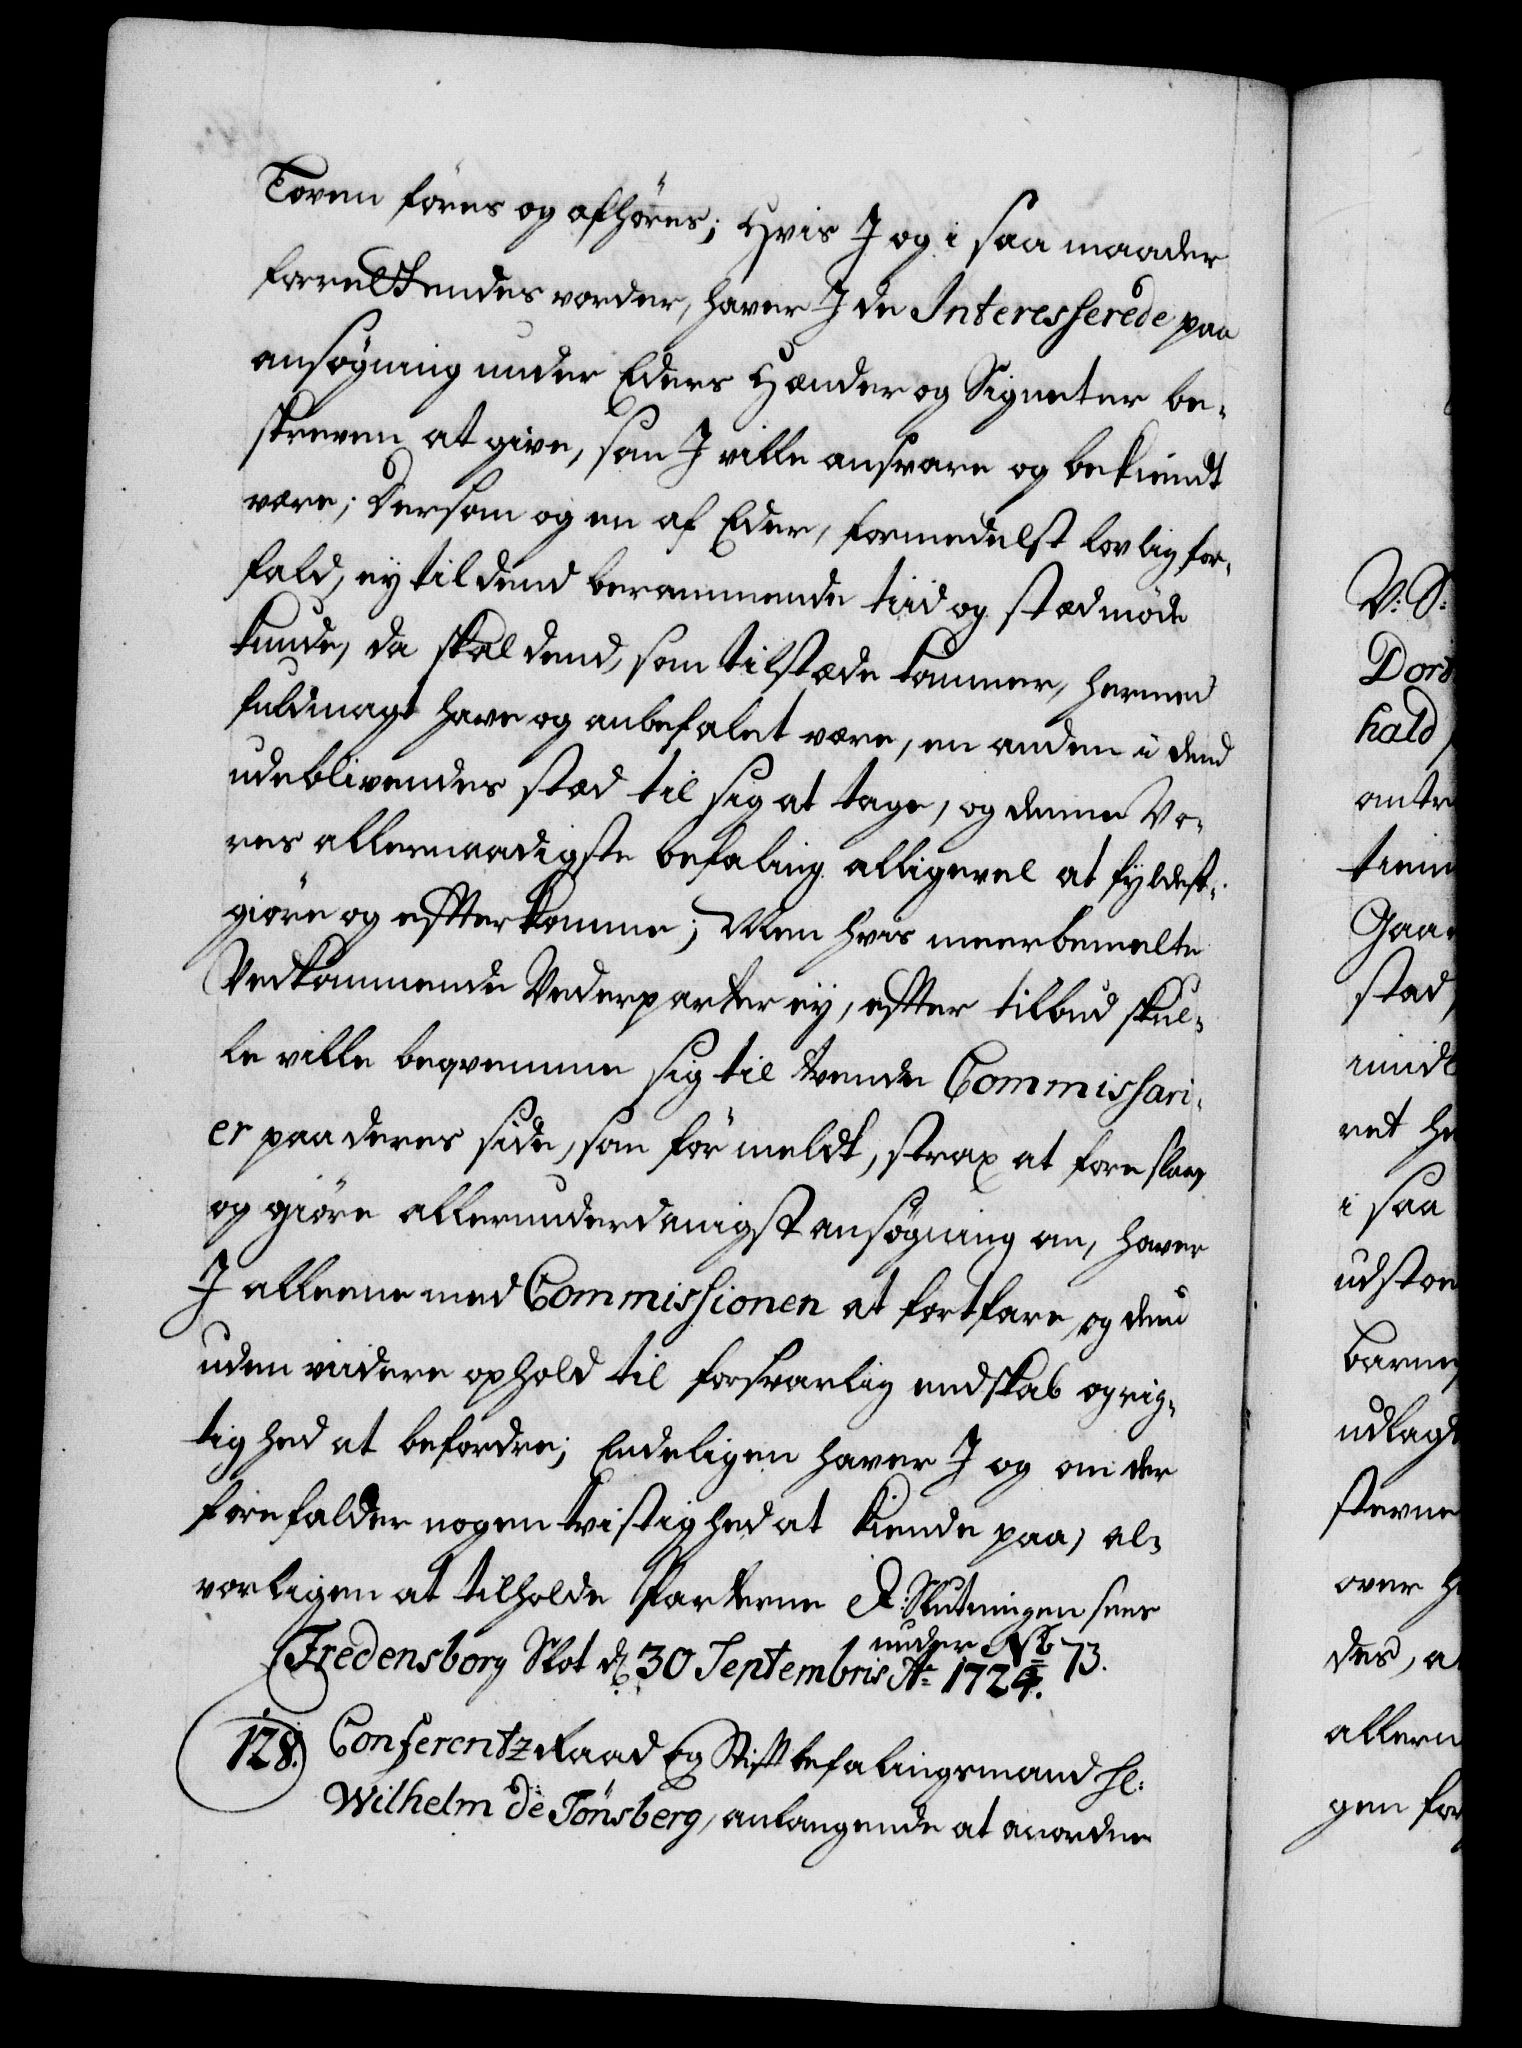 Loven føres og afhøres; Hvis I og i saa maader
forrettendes vorder, haver I de Interesserede paa
ansøgning under Eders Hænder og Signeter be-
skreven at give, som I ville ansvare og bekiendt
være; Dersom og en af Eder, formedelst lovlig for-
fald, ey til dend berammende tiid og stæd møde
kunde, da skal dend, som tilstæde kommer, hermed
fuldmagt have og anbefalet være, en anden i dend
udeblivendes stæd til sig at tage, og denne Vo-
res allernaadigste befaling alligevel at fyldest-
giøre og efterkomme; Men hvis meerbemelte
Vedkommende Vederparter ey, effter tilbud skul-
le ville beqvemme sig til tvende Commissari-
er paa deres side, som før meldt, strax at foreslaae
og giøre allerunderdanigst ansøgning om, haver
I alleene med Commissionen at fortfare, og dend
uden viidere ophold til forsvarlig endskab og rig-
tighed at befordre; Endeligen haver I og om der
forefalder nogen tvistighed at kiende paa, al-
vorligen at tilholde Parterne &: Slutningen sees
under No 73.
Fredensborg Slot d. 30 Septembris Ao 1724.
128. Conferentz Raad og Stiftbefalingsmand Hr:
Wilhelm de Tønsberg, anlangende at anordne
V: S:
Dor
hald
antr
tiene
Gaar
stad,
mindt
ret he
i saa
udstæ
barne
udlagt
stevne
over h
des, a
allern
gen for